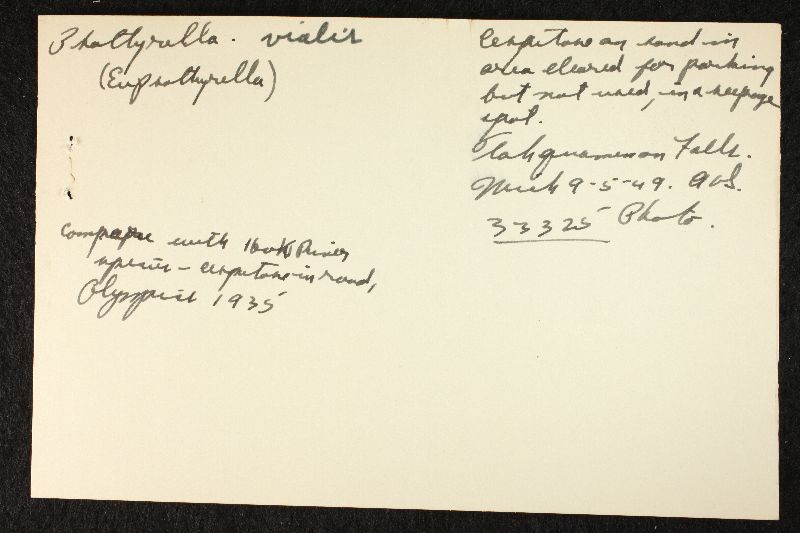 Psathyrella. vialis
(Eupsathyrella)
compare with Hoh River
species - cespitose in road,
Olympics 1935
Cespitose on sand in
area cleared for parking
but not used, in a seepage
spot.
Tahquamenon Falls.
Mich 9-5-49. AHS.
33325 Photo.